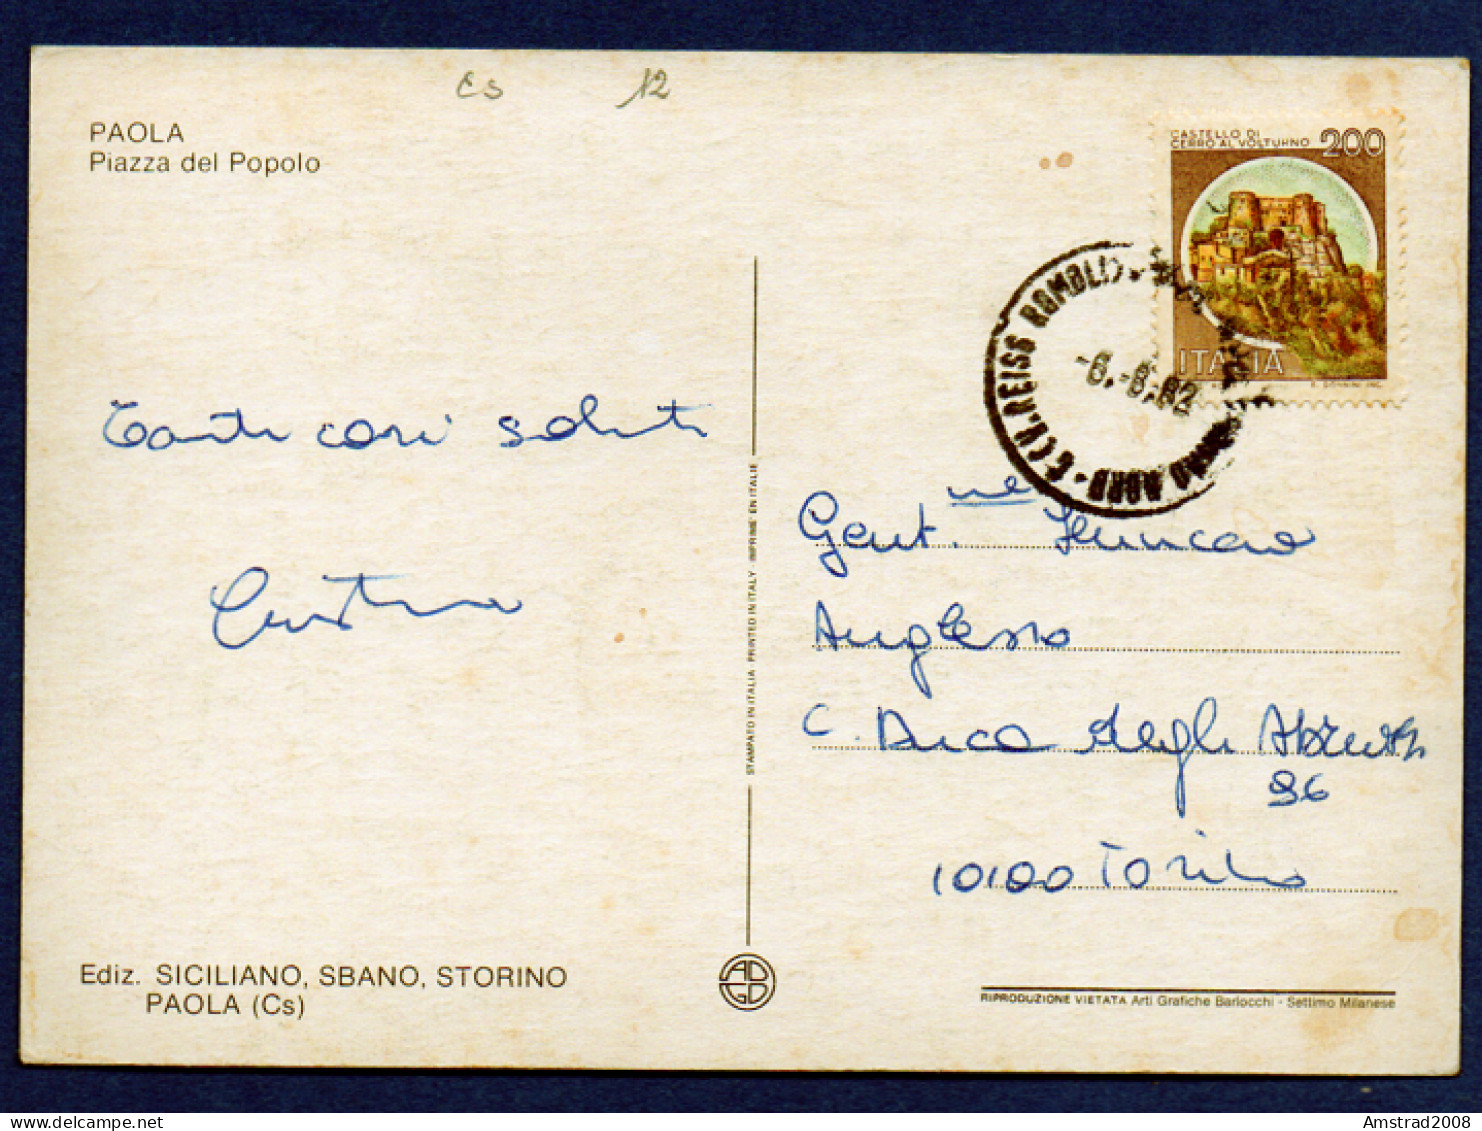 cs 12
PAOLA
Piazza del Popolo
CASTELLO DI
CERRO AL VOLTURNO 200
ITALIA
(V.REISS ROMOLI)
-6.-6.82
Tanti cari saluti
Cristina
Gent.me
Anglesio
C. Duca degli Abruzzi
96
10100 Torino
STAMPATO IN ITALIA PRINTED IN ITALY IMPRIMÉ EN ITALIE
Ediz. SICILIANO, SBANO, STORINO
PAOLA (Cs)
RIPRODUZIONE VIETATA Arti Grafiche Barlocchi - Settimo Milanese
delcampe.net
Amstrad2008